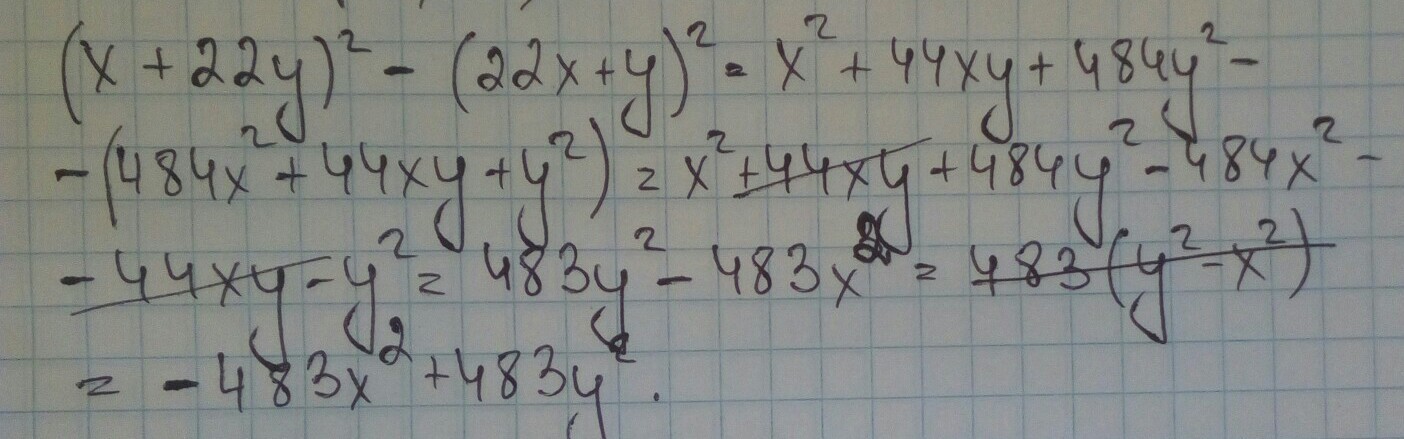 (x + 22y)² - (22x + y)² = x² + 44xy + 484y² -
- (484x² + 44xy + y²) = x² + 44xy + 484y² - 484x² -
- 44xy - y² = 483y² - 483x² = 483(y² - x²)
= - 483x² + 483y².